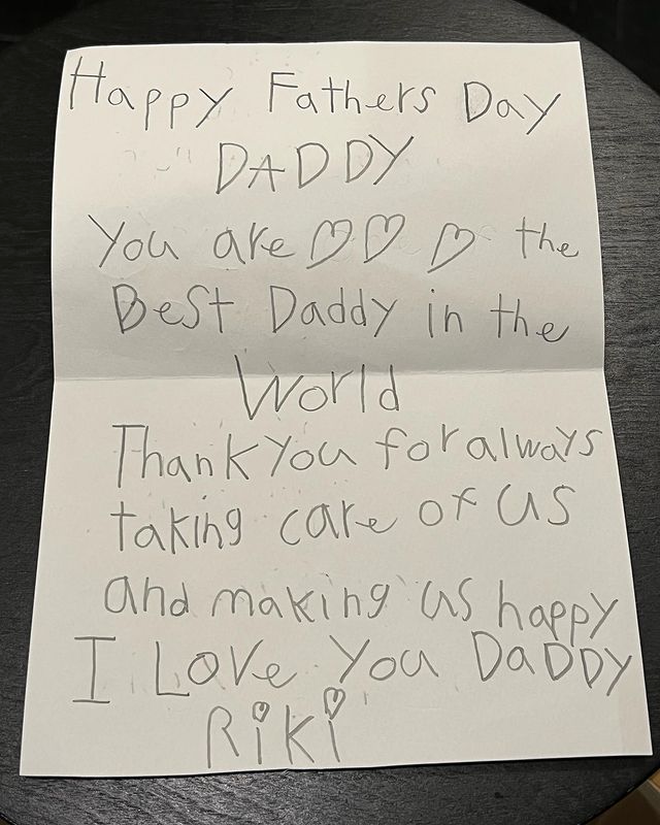 Happy Fathers Day
DADDY
You are ♡♡ ♡ the
Best Daddy in the
World
Thank You for always
taking care of us
and making us happy
I Love You DaDDY
Riki